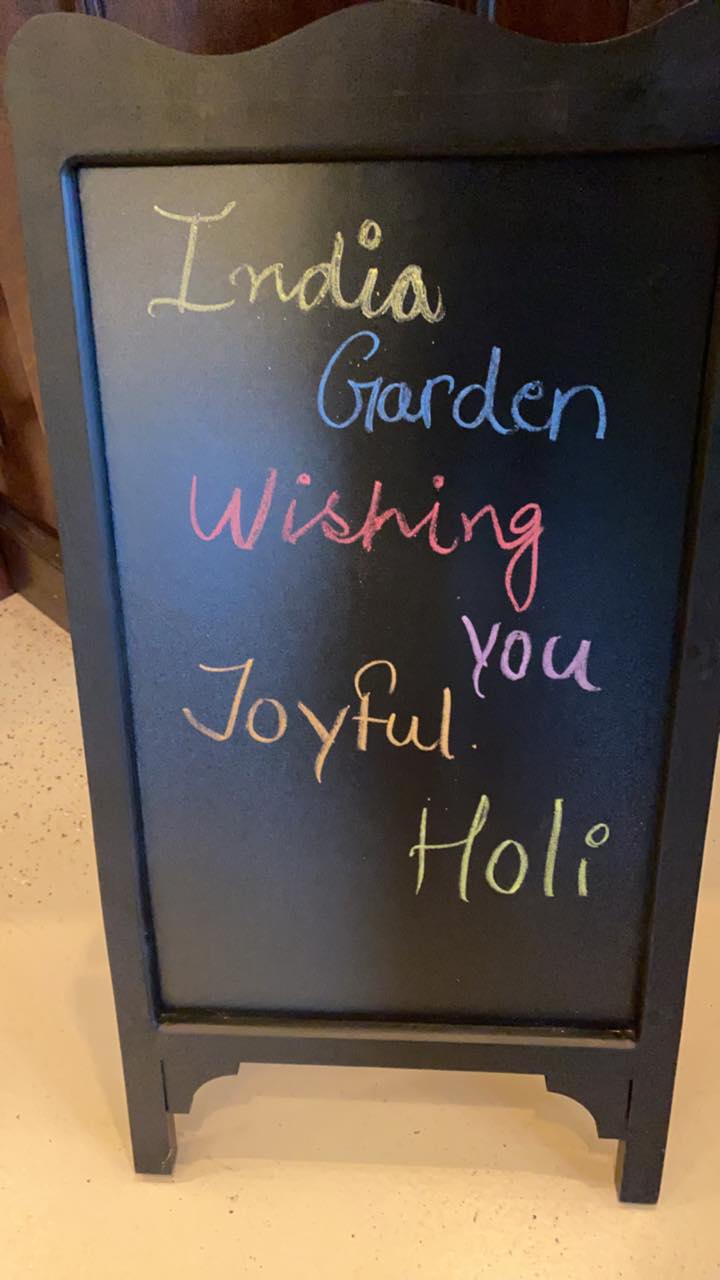 India
Garden
Wishing
you
Joyful.
Holi